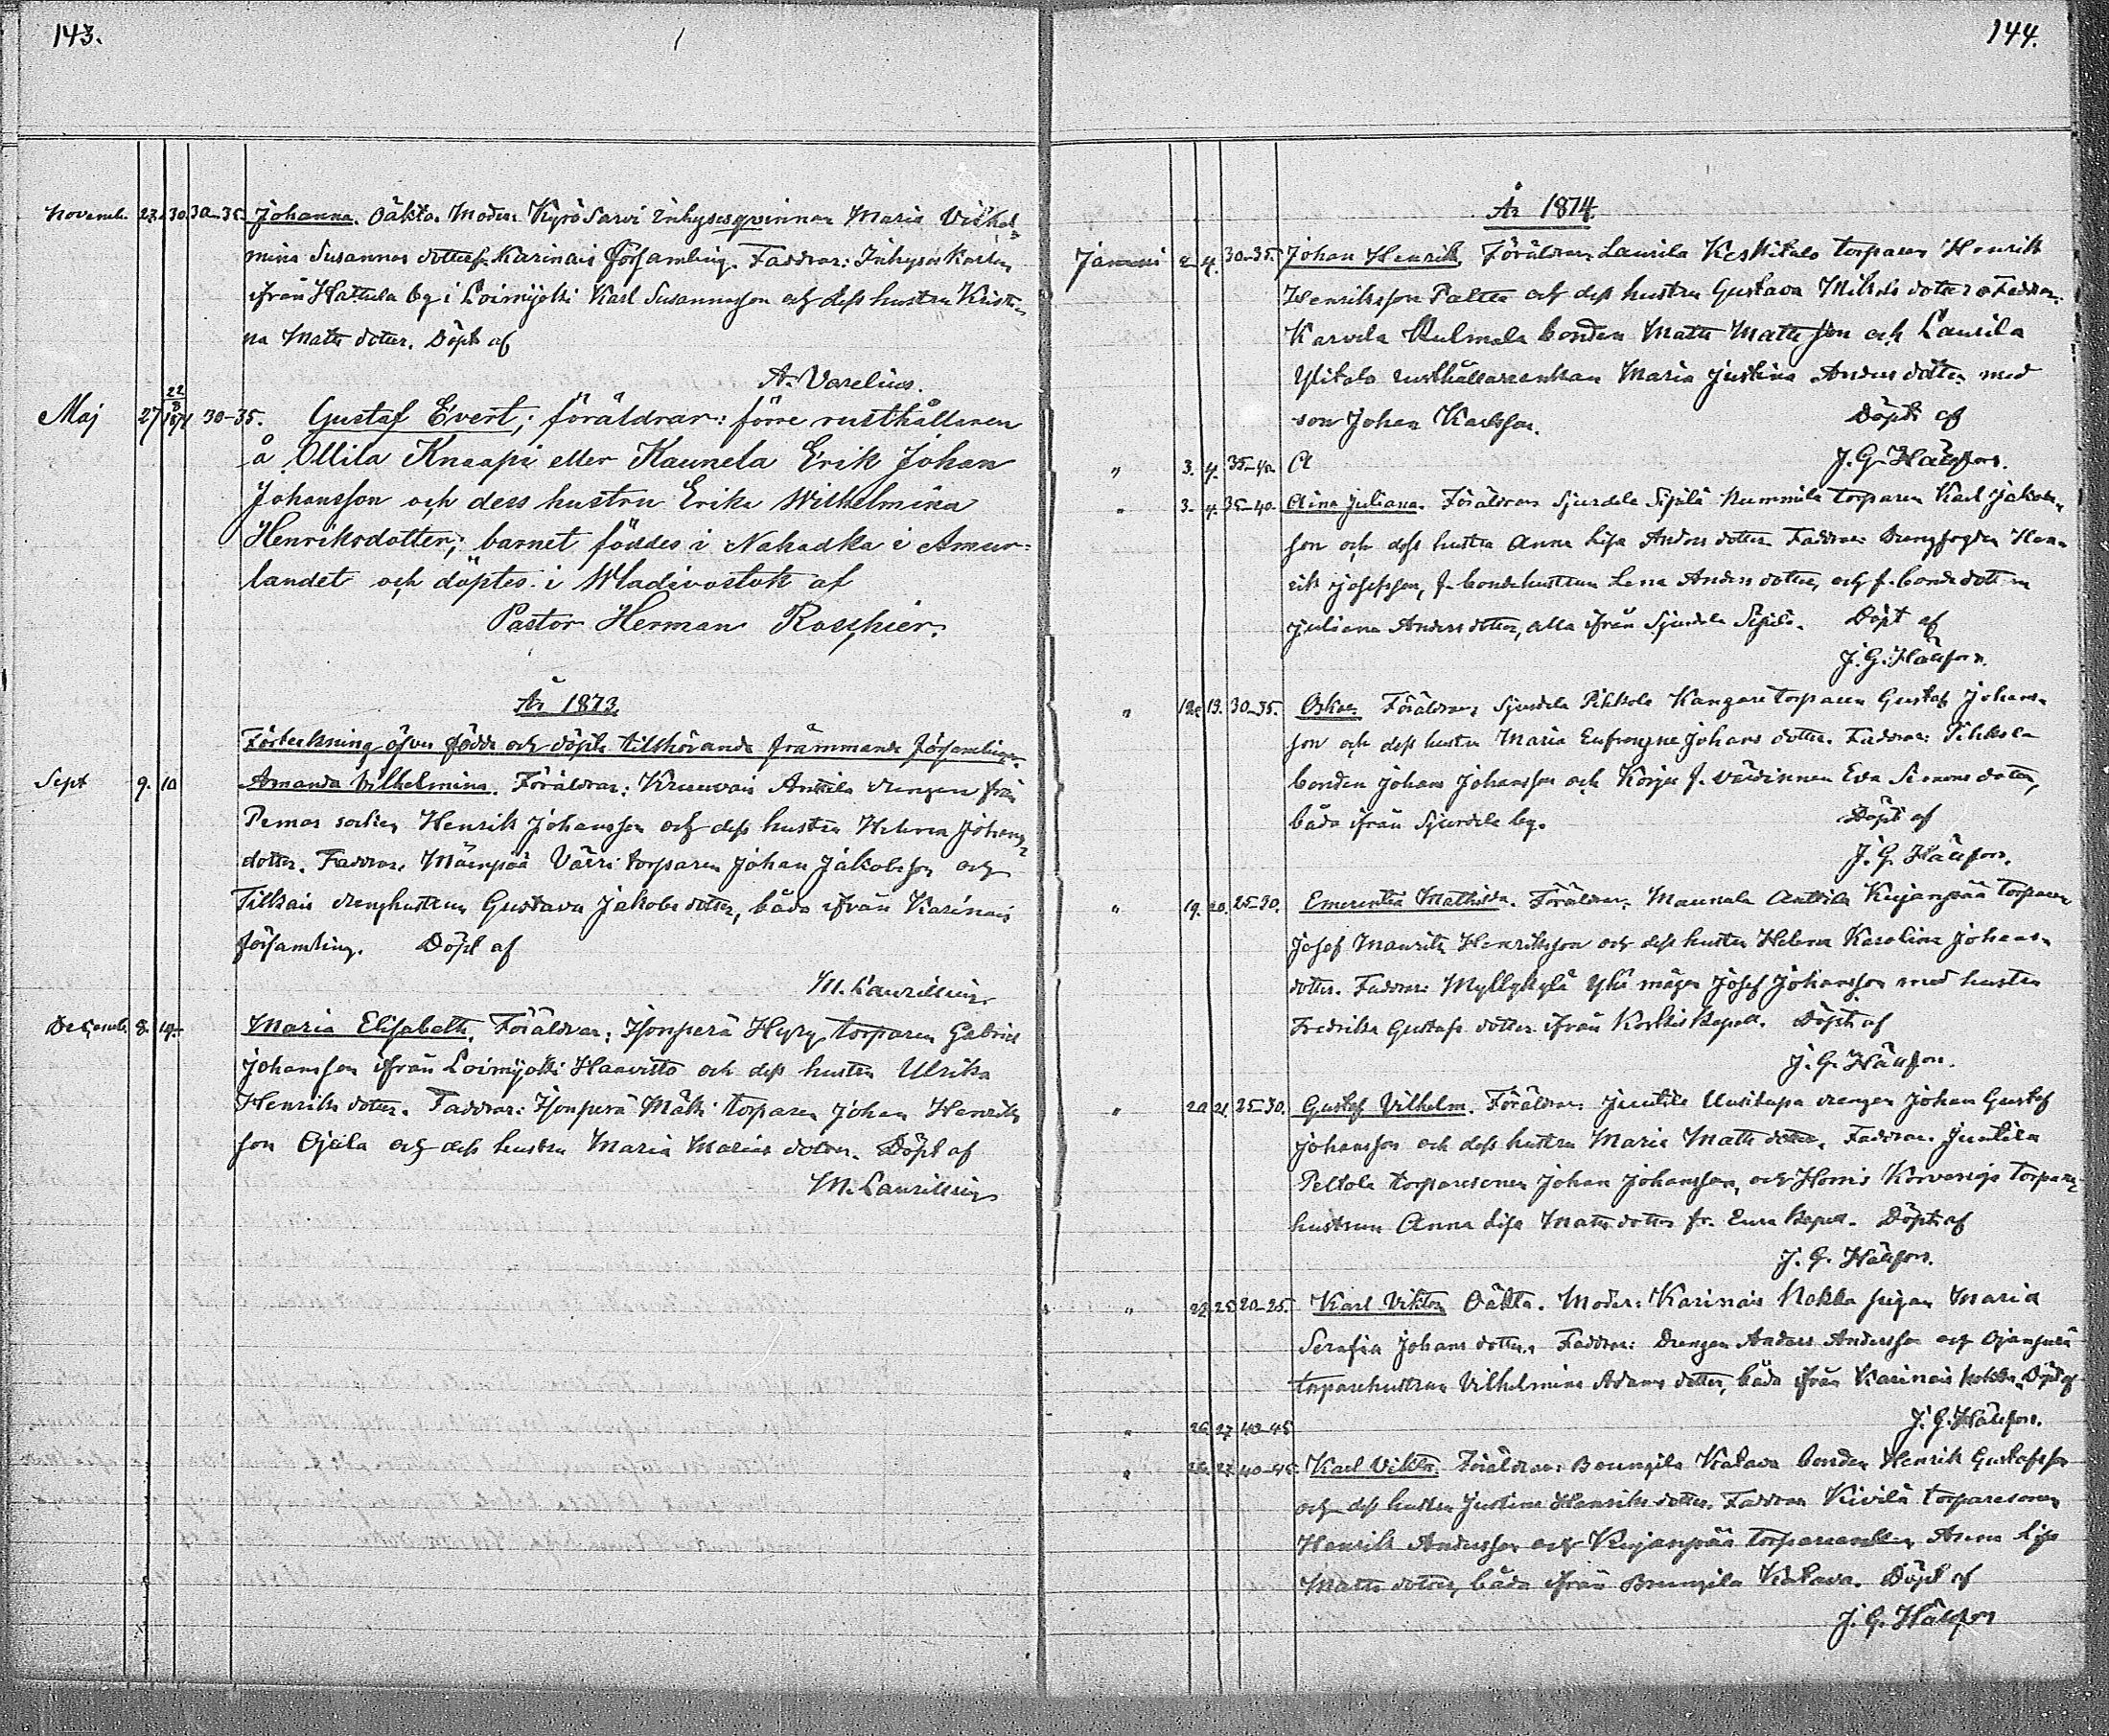 143.
Novemb. 27. 30. 30-35. Johanna. Oäkta. Moder: Kyrö Sarvi Inhysesqvinnan Maria Vilhel-
mina Susannas dotter fr. Karinais församling. Faddrar: Inhyses karlen
ifrån Hattula by i Loimijoki Karl Susannasson och dess hustru Kristi-
na Matts dotter. Döpt af
A. Varelius.
Maj 27 22/8 1874 30-35. Gustaf Evert; föräldrar: förre rusthållaren
å Ollila Knaapi eller Kaunela Erik Johan
Johansson och dess hustru Erika Wilhelmina
Henriksdotter; barnet föddes i Nahadka i Amur-
landet och döptes i Wladivostok af
Pastor Herman Roschier.
År 1873.
Förteckning öfver födde och döpte tillhörande främmande församlingar.
Sept 9. 10 Amanda Vilhelmina. Föräldrar: Anttila drengen från
Pemar socken Henrik Johansson och dess hustru Helena Johans-
dotter. Faddrar: Mäenpää Värri torparen Johan Jakobsson och
drenghustrun Gustava Jakobs dotter, båda ifrån Karinais
församling. Döpt af
M. Laurillius
December 8. 14. Maria Elisabeth. Föräldrar: Isoperä Hyry torparen Gabriel
Johansson ifrån Loimijoki Haavisto och dess hustru Ulrika
Henriks dotter. Faddrar: Isoperä Mäki torparen Johan Henriks
son Ojala och dess hustru Maria Marias dotter. Döpt af
M. Laurillius
144.
År 1874.
Januari 2. 4. 30-35. Johan Henrik. Föräldrar: Laurila Keskitalo torparen Henrik
Henriksson Paltta och dess hustru Gustava Mikels dotter. Faddrar:
Karvela Kulmala bonden Matts Mattsson och Laurila
Ylitalo rusthållareenkan Maria Justina Anders dotter med
son Johan Karlsson. Döpt af
J. G. Hällfors.
" 3. 4. 35-40. A
" 3. 4. 35-40. Aina Juliana. Föräldrar: Sjurdela Sipilä Nummila torparen Karl Jakobs-
son och dess hustru Anna Lisa Anders dotter. Faddrar: Drengfogden Hen-
rik Josefsson, f. bondehustrun Lena Anders dotter, och f. bondedottern
Juliana Anders dotter, alla ifrån Sjurdela Sipilä. Döpt af
J. G. Hällfors.
" 12. 13. 30-35. Oskar. Föräldrar: Sjurdela Pihkola Kangare torparen Gustaf Johans-
son och dess hustru Maria Eufrosyne Johans dotter. Faddrar: Pihkola
bonden Johan Johansson och Korpi f. värdinnan Eva Simons dotter,
båda ifrån Sjurdela by. Döpt af
J. G. Hällfors.
" 19. 20. 25-30. Emerentia Mathilda. Föräldrar: Maunula Anttila Kujanpää torparen
Josef Mauritz Henriksson och dess hustru Helena Karolina Johans-
dotter. Faddrar: Myllykylä Yli mågen Josef Johansson med hustru
Fredrika Gustafs dotter ifrån Koskis Kapell. Döpt af
J. G. Hällfors.
" 20. 21. 25-30. Gustaf Vilhelm. Föräldrar: Juntila Uusitupa drengen Johan Gustaf
Johansson och dess hustru Maria Matts dotter. Faddrar: Juntila
Peltola torparesonen Johan Johansson, och Honis Korvenoja torpare
hustrun Anna Lisa Matts dotter fr. Eura Kapell. Döpt af
J. G. Hällfors.
" 22. 25. 20-25. Karl Viktor Oäkta. Moder: Karinais Nokka pigan Maria
Serafia Johans dotter. Faddrar: Drengen Anders Andersson och Ojanperä
torparehustrun Vilhelmina Adams dotter, båda ifrån Karinais Nokka. Döpt af
J. G. Hällfors.
" 26. 27. 40-45
" 26. 27. 40-45. Karl Viktor. Föräldrar: Brunnila Katava bonden Henrik Gustafsson
och dess hustru Justina Henriks dotter. Faddrar: Kivilä torparesonen
Henrik Andersson och Kujanpää torpareenkan Anna Lisa
Matts dotter, båda ifrån Brunnila Katava. Döpt af
J. G. Hällfors